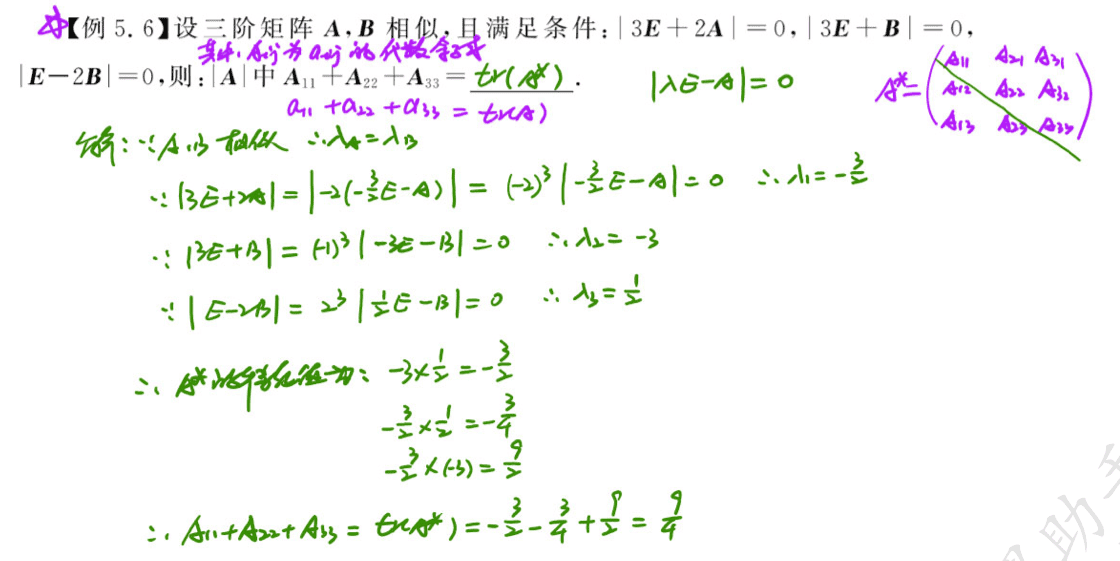 【例 5.6】设三阶矩阵 A,B 相似,且满足条件:|3E+2A|=0,|3E+B|=0,
其中,Aij 为 aij 的代数余子式
|E-2B|=0,则:|A|中 A₁₁+A₂₂+A₃₃= tr(A*) .
|λE-A|=0
A*=(A₁₁ A₂₁ A₃₁
A₁₂ A₂₂ A₃₂
A₁₃ A₂₃ A₃₃)
a₁₁+a₂₂+a₃₃=tr(A)
解:∵A,B 相似 ∴λA=λB
∵|3E+2A|=|-2(-3/2E-A)|=(-2)³|-3/2E-A|=0 ∴λ₁=-3/2
∵|3E+B|=(-1)³|-3E-B|=0 ∴λ₂=-3
∵|E-2B|=2³|1/2E-B|=0 ∴λ₃=1/2
∴A*的特征值为:-3×1/2=-3/2
-3/2×1/2=-3/4
-3/2×(-3)=9/2
∴A₁₁+A₂₂+A₃₃=tr(A*)=-3/2-3/4+9/2=9/4